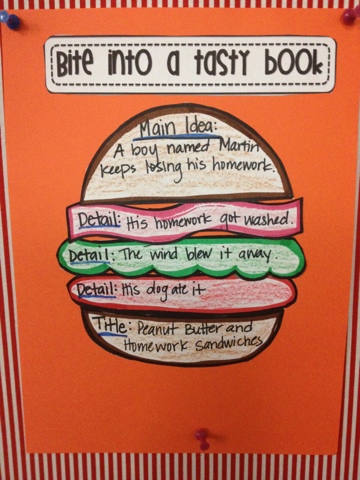 Bite into a tasty book
Main Idea:
A boy named Martin
keeps losing his homework.
Detail: His homework got washed.
Detail: The wind blew it away
Detail: His dog ate it
Title: Peanut Butter and
Homework Sandwiches